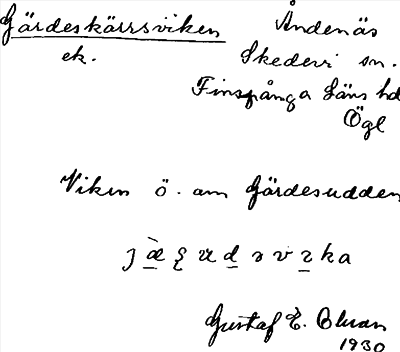 Gärdeskärrsviken
Åndenäs
ek.
Skedevi sn.
Finspånga läns hd
Ögl
Viken ö. om Gärdesudden
Gustaf E.
1930